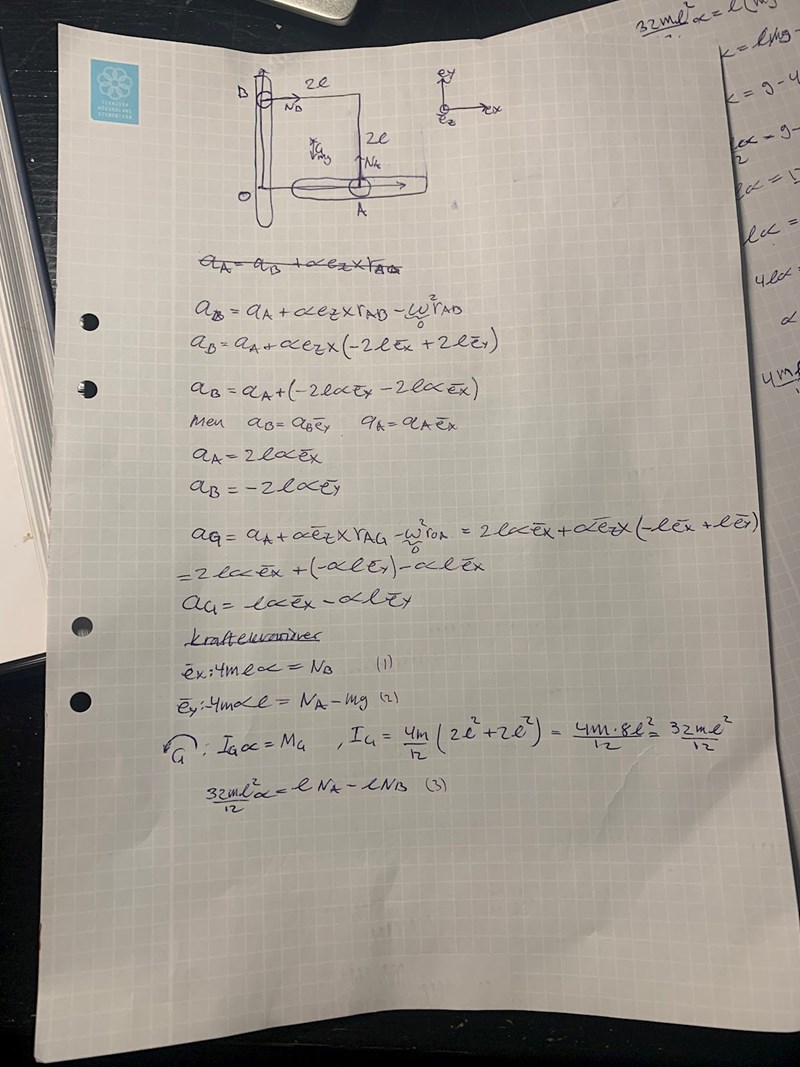 B 2l
N_B
2l
G
mg
N_A
O
A
ey
ex
e̅z
a_A = a_B + αe_z × r_AB
a_B = a_A + αe_z × r_AB - ω² r_AB
0
a_B = a_A + αe_z × (-2l e̅x + 2l e̅y)
a_B = a_A + (-2lα e̅y - 2lα e̅x)
men a_B = a_B e̅y a_A = a_A e̅x
a_A = 2lα e̅x
a_B = -2lα e̅y
a_G = a_A + α e̅z × r_AG - ω² r_OA = 2lα e̅x + α e̅z × (-l e̅x + l e̅y)
0
= 2lα e̅x + (-αl e̅y) - αl e̅x
a_G = lα e̅x - αl e̅y
kraftekvationer
e̅x: 4mlα = N_B (1)
e̅y: -4mαl = N_A - mg (2)
G: I_G α = M_G , I_G = 4m/12 (2l² + 2l²) = 4m·8l²/12 = 32ml²/12
32ml²/12 α = l N_A - l N_B (3)
32ml² α = l(mg
= lmg -
= g - 4
= g -
2
lα =
lα =
4lα =
α
4ml